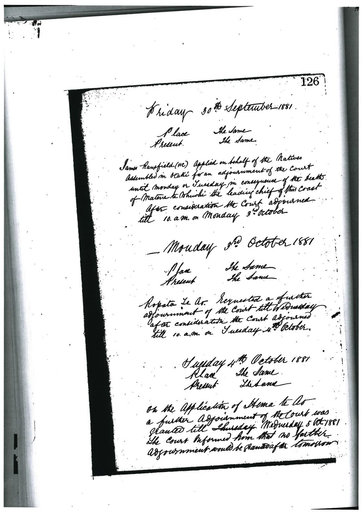 126
Friday 30th September 1881
Place The Same
Present The Same
James applied on behalf of the Natives
assembled in for an adjournment of the Court
until Monday or Tuesday in consequence of the death
of the leading chief of this coast
After consideration the Court adjourned
till 10 a.m. on Monday 3rd October
— Monday 3rd October 1881
Place The Same
Present The Same
Ropata Te Ao. Requested a further
adjournment of the Court till Wednesday
after consideration the Court adjourned
till 10 a.m. on Tuesday 4th October.
Tuesday 4th October 1881
Place The Same
Present The Same
On the Application of Hema te Ao
a further Adjournment of the Court was
granted till Thursday Wednesday 5th 1881
The Court informed him that no further
adjournment would be granted after tomorrow